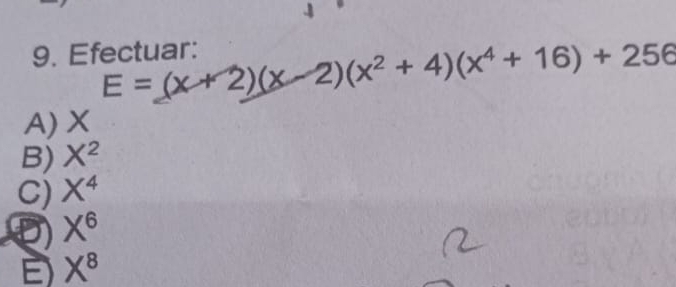 9. Efectuar:
E = (x + 2)(x - 2)(x² + 4)(x⁴ + 16) + 256
A) X
B) X²
C) X⁴
D) X⁶
E) X⁸
2